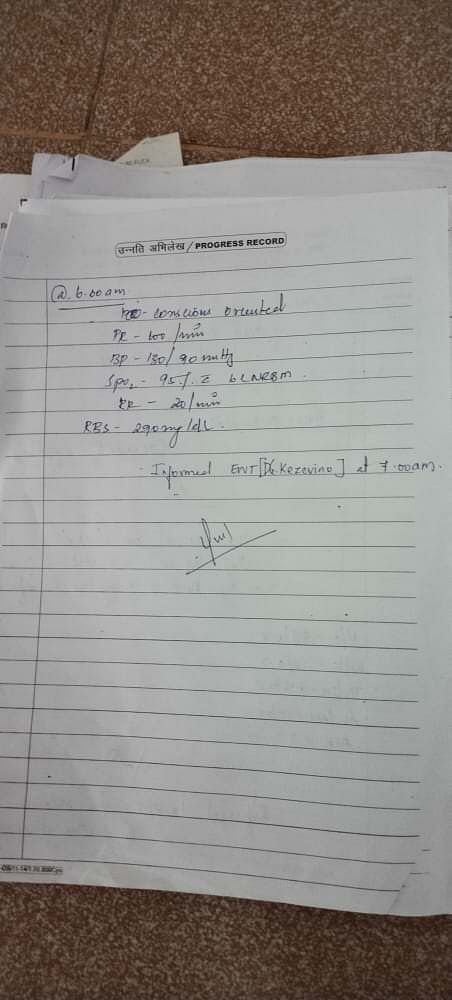 उन्नति अभिलेख / PROGRESS RECORD
@ 6.00am
conscious oriented
PR - 100 /min
BP - 130/90 mmHg
SpO2 - 95% c 6L NRBM.
RR - 20/min
RBS - 290mg/dL.
- Informed ENT [Dr. Kezevino] at 7.00am.